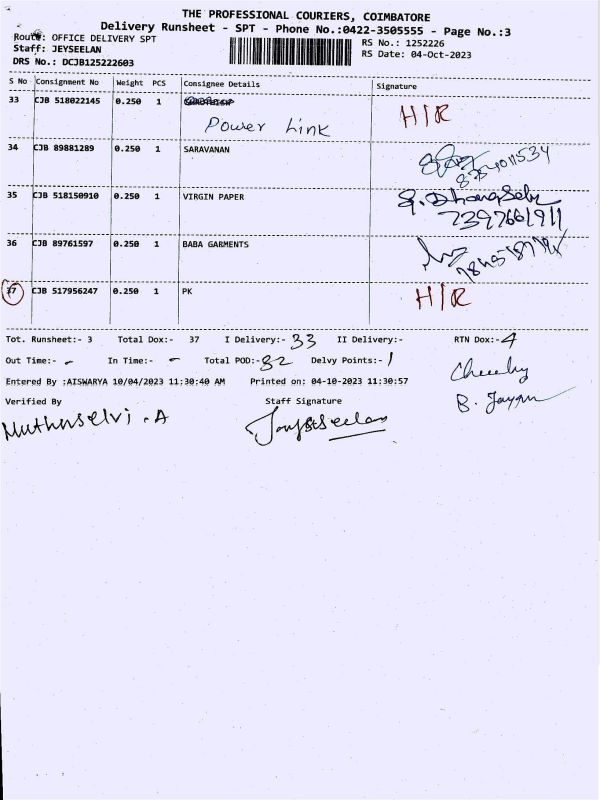 THE PROFESSIONAL COURIERS, COIMBATORE
Delivery Runsheet - SPT - Phone No.:0422-3505555 - Page No.:3
Route: OFFICE DELIVERY SPT
RS No.: 1252226
Staff: JEYSEELAN
RS Date: 04-Oct-2023
DRS No.: DCJB125222603
S No Consignment No Weight PCS Consignee Details Signature
33 CJB 518022145 0.250 1
Power Link H/R
34 CJB 89881289 0.250 1 SARAVANAN
35 CJB 518150910 0.250 1 VIRGIN PAPER
7397661911
36 CJB 89761597 0.250 1 BABA GARMENTS
37 CJB 517956247 0.250 1 PK H/R
Tot. Runsheet:- 3 Total Dox:- 37 I Delivery:- 33 II Delivery:- RTN Dox:- 4
Out Time:- - In Time:- - Total POD:- 32 Delvy Points:- 1
Entered By :AISWARYA 10/04/2023 11:30:40 AM Printed on: 04-10-2023 11:30:57
Verified By Staff Signature
Muthuselvi.A Jeyseelan